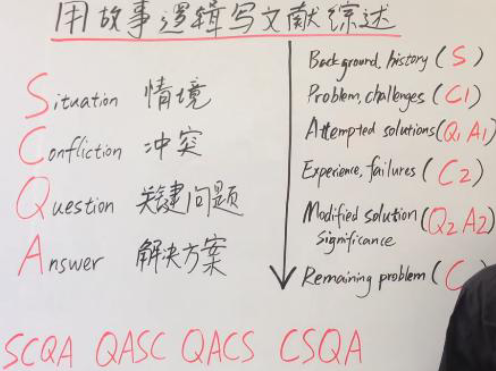 用故事逻辑写文献综述
Situation 情境
Confliction 冲突
Question 关键问题
Answer 解决方案
Background, history (S)
Problem, challenges (C1)
Attempted solutions (Q1 A1)
Experience, failures (C2)
Modified solution (Q2 A2)
significance
Remaining problem (C
SCQA QASC QACS CSQA